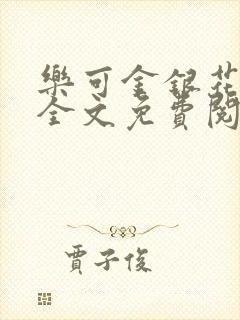 樂可金銀花
全文免費閱
賈子俊